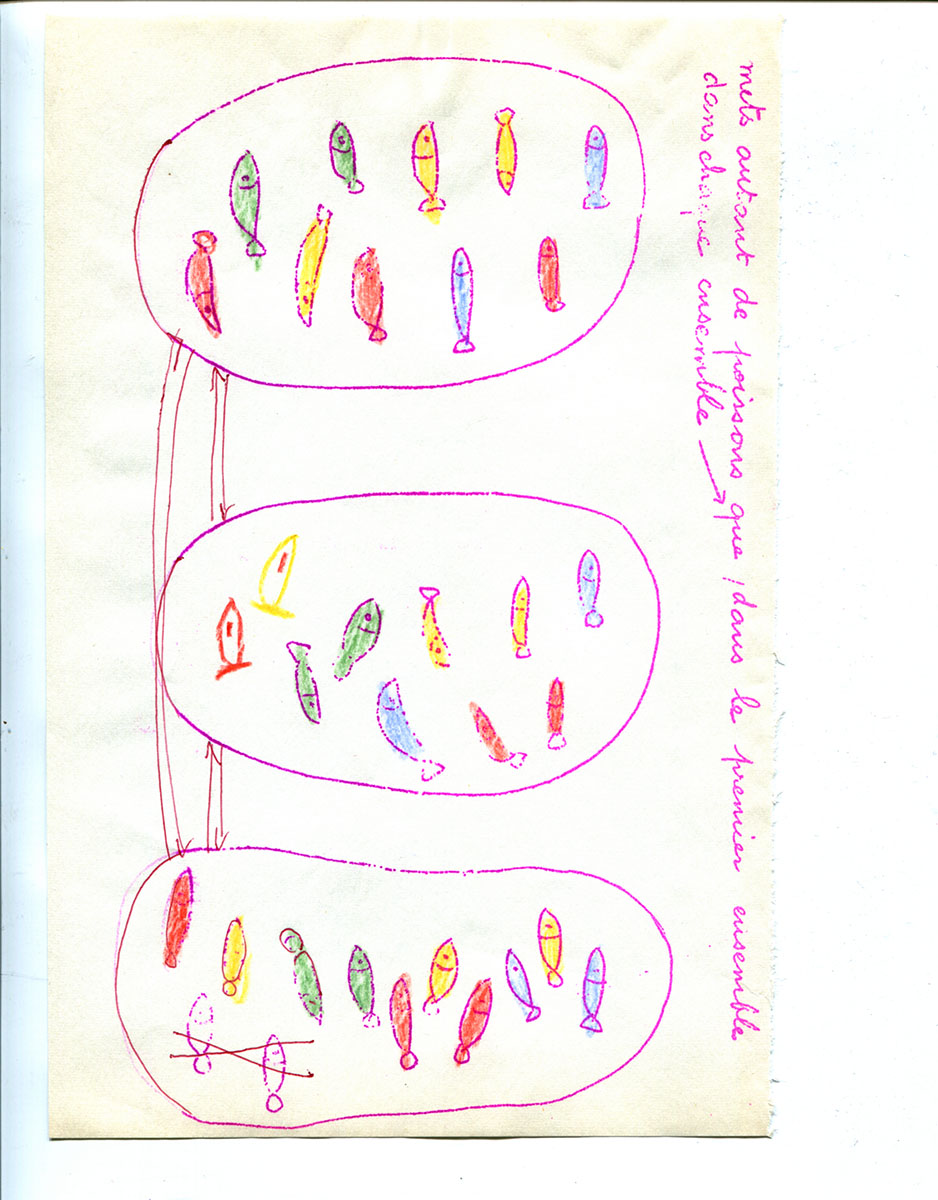 mets autant de poissons que dans le premier ensemble
dans chaque ensemble →